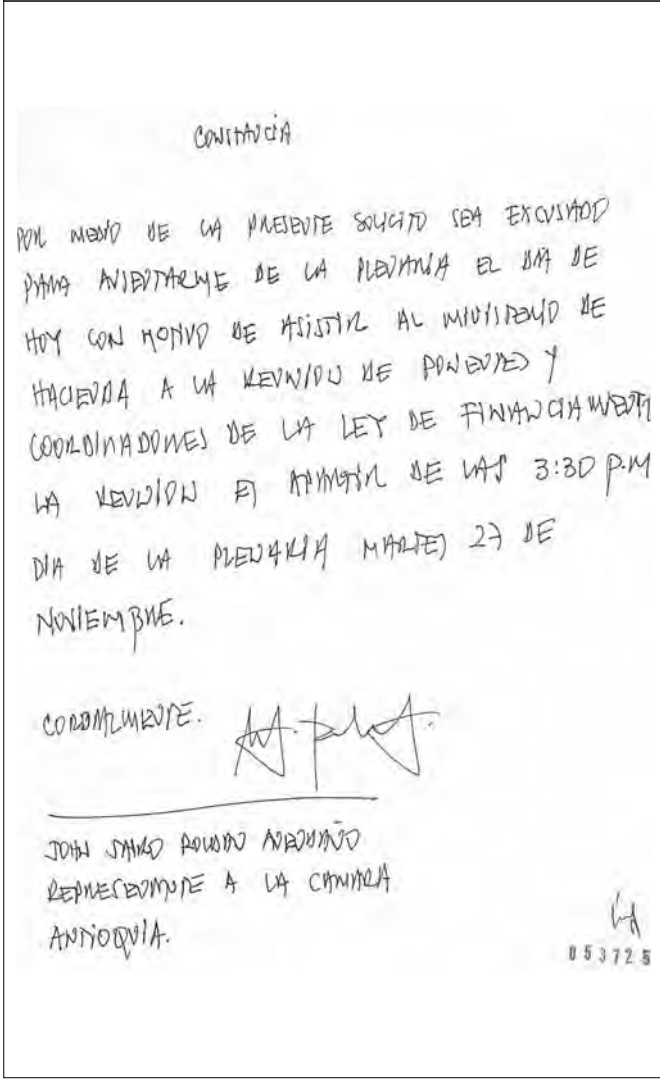 CONSTANCIA
POR MEDIO DE LA PRESENTE SOLICITO SEA EXCUSADO
PARA AUSENTARME DE LA PLENARIA EL DIA DE
HOY CON MOTIVO DE ASISTIR AL MINISTERIO DE
HACIENDA A LA REUNION DE PONENTES Y
COORDINADORES DE LA LEY DE FINANCIAMIENT
LA REUNION ES APARTIR DE LAS 3:30 P.M
DIA DE LA PLENARIA MARTES 27 DE
NOVIEMBRE.
CORDIALMENTE.
JOHN JAIRO ROLDAN AVENDAÑO
REPRESENTANTE A LA CAMARA
ANTIOQUIA.
053725